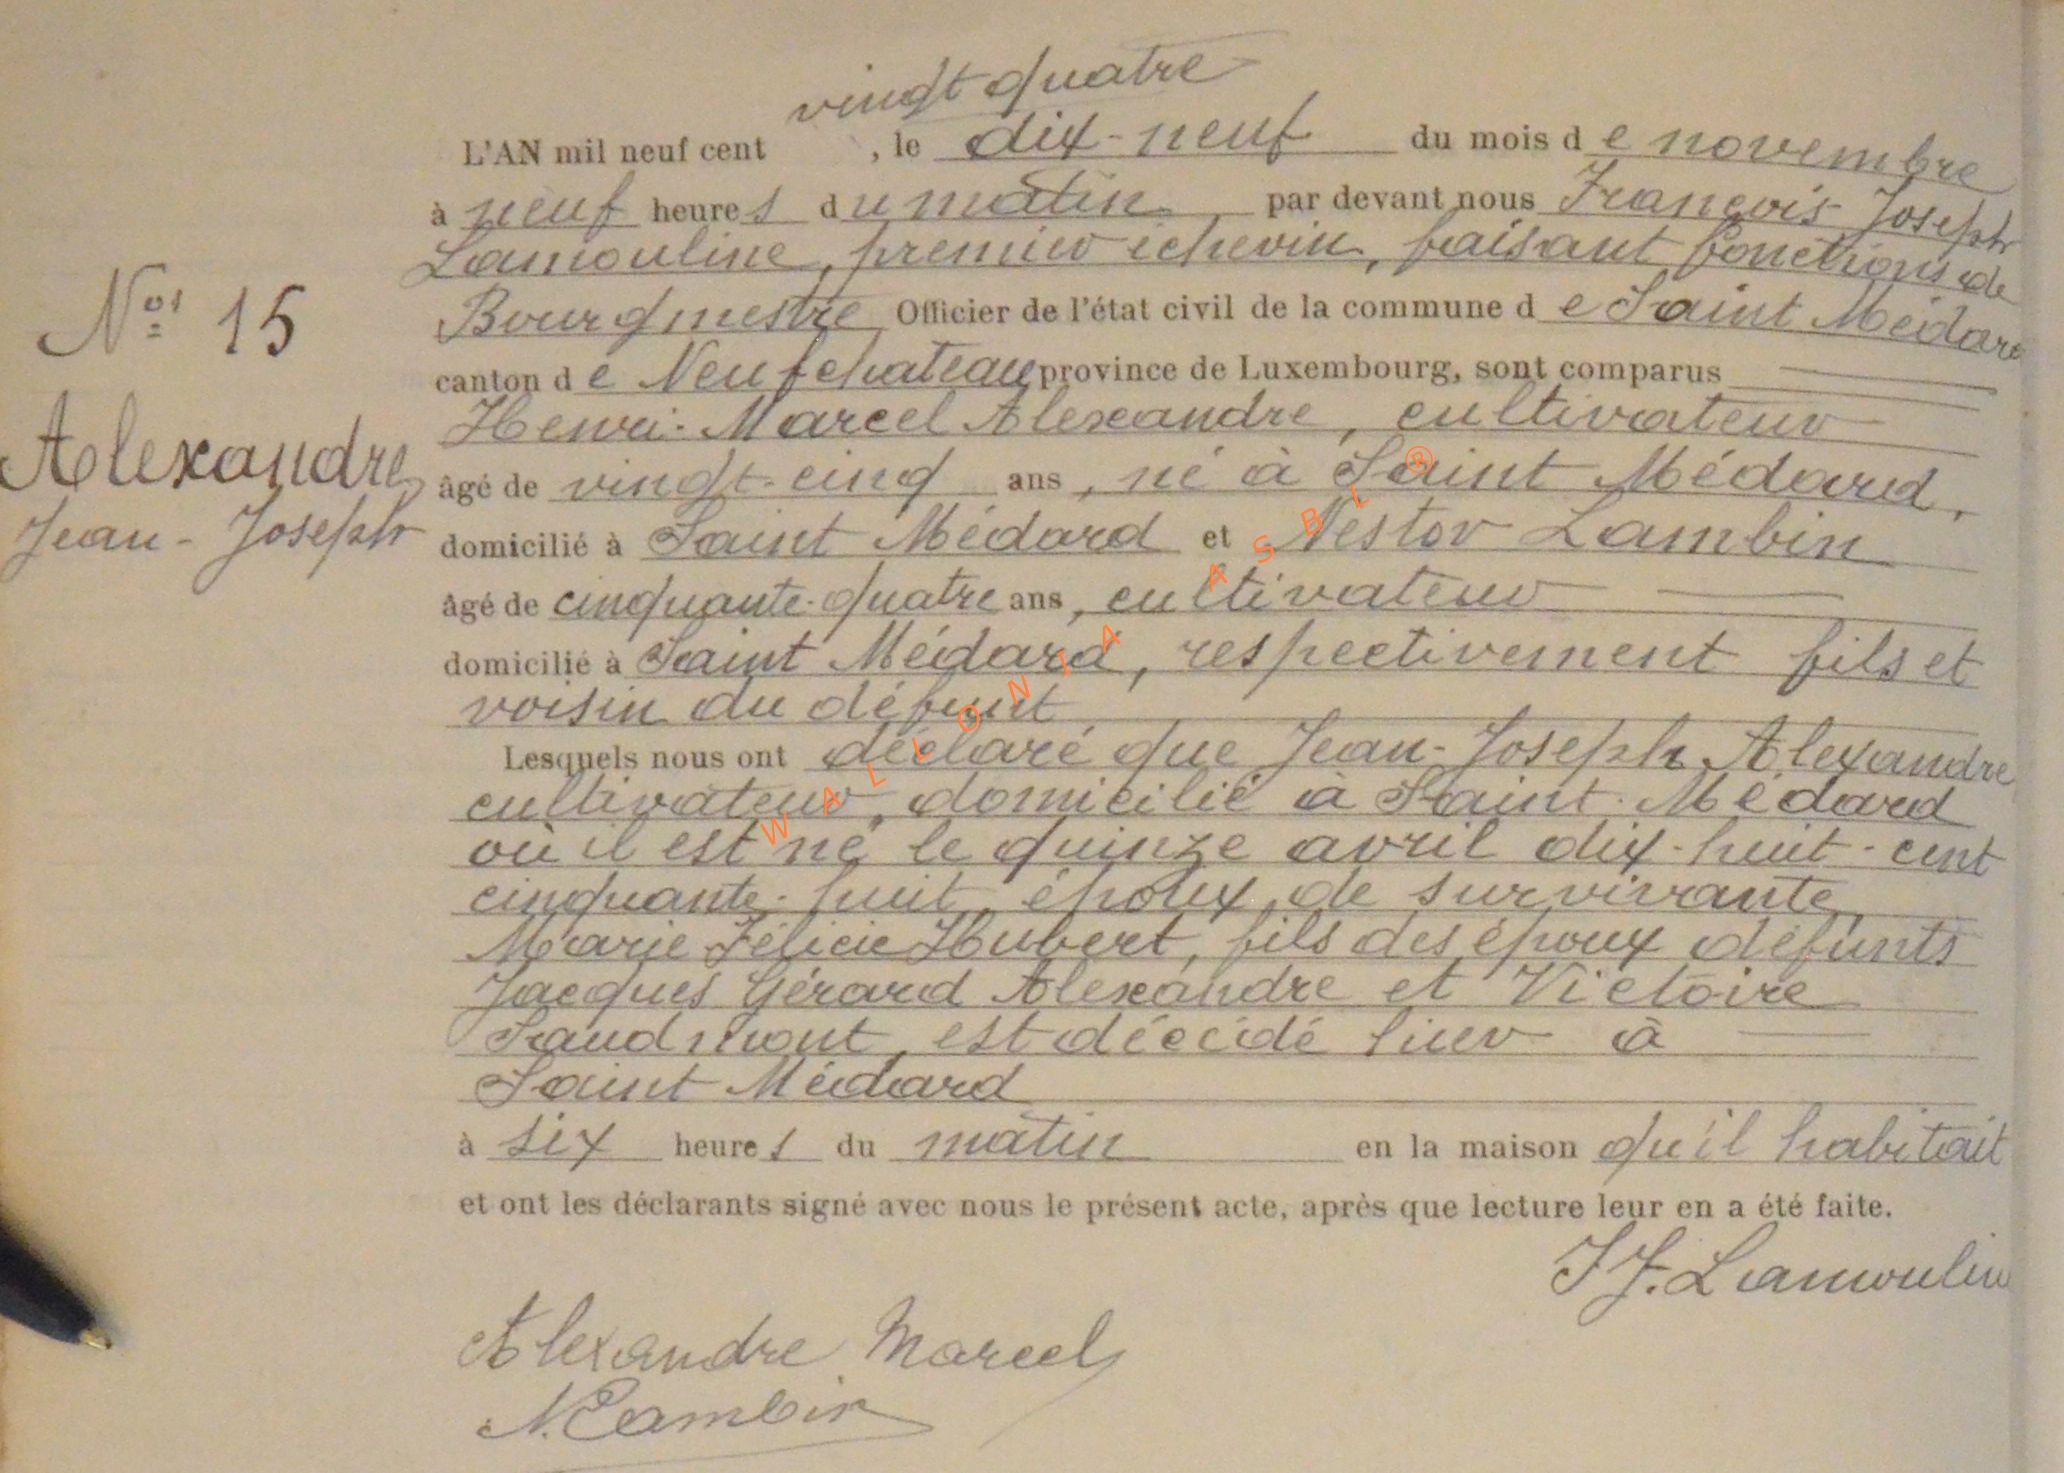 vingt quatre
L'AN mil neuf cent , le dix-neuf du mois de novembre
à neuf heures du matin, par devant nous François Joseph
Lamouline, premier échevin, faisant fonctions de
Bourgmestre Officier de l'état civil de la commune de Saint Médard
canton de Neufchateau province de Luxembourg, sont comparus
Nos 15
Henri-Marcel Alexandre, cultivateur
Alexandre
âgé de vingt-cinq ans, né à Saint Médard,
Jean-Joseph
domicilié à Saint Médard et Nestor Lambin
âgé de cinquante-quatre ans, cultivateur
domicilié à Saint Médard, respectivement fils et
voisin du défunt
Lesquels nous ont déclaré que Jean-Joseph Alexandre
cultivateur, domicilié à Saint-Médard
où il est né, le quinze avril dix-huit-cent
cinquante-huit, époux de survivante
Marie Félicie Hubert, fils des époux défunts
Jacques Gérard Alexandre et Victoire
est décédé hier à
Saint Médard
à six heures du matin en la maison qu'il habitait
et ont les déclarants signé avec nous le présent acte, après que lecture leur en a été faite.
J. Lamouline
Alexandre Marcel
N. Lambin
WALLONIA ASBL ®